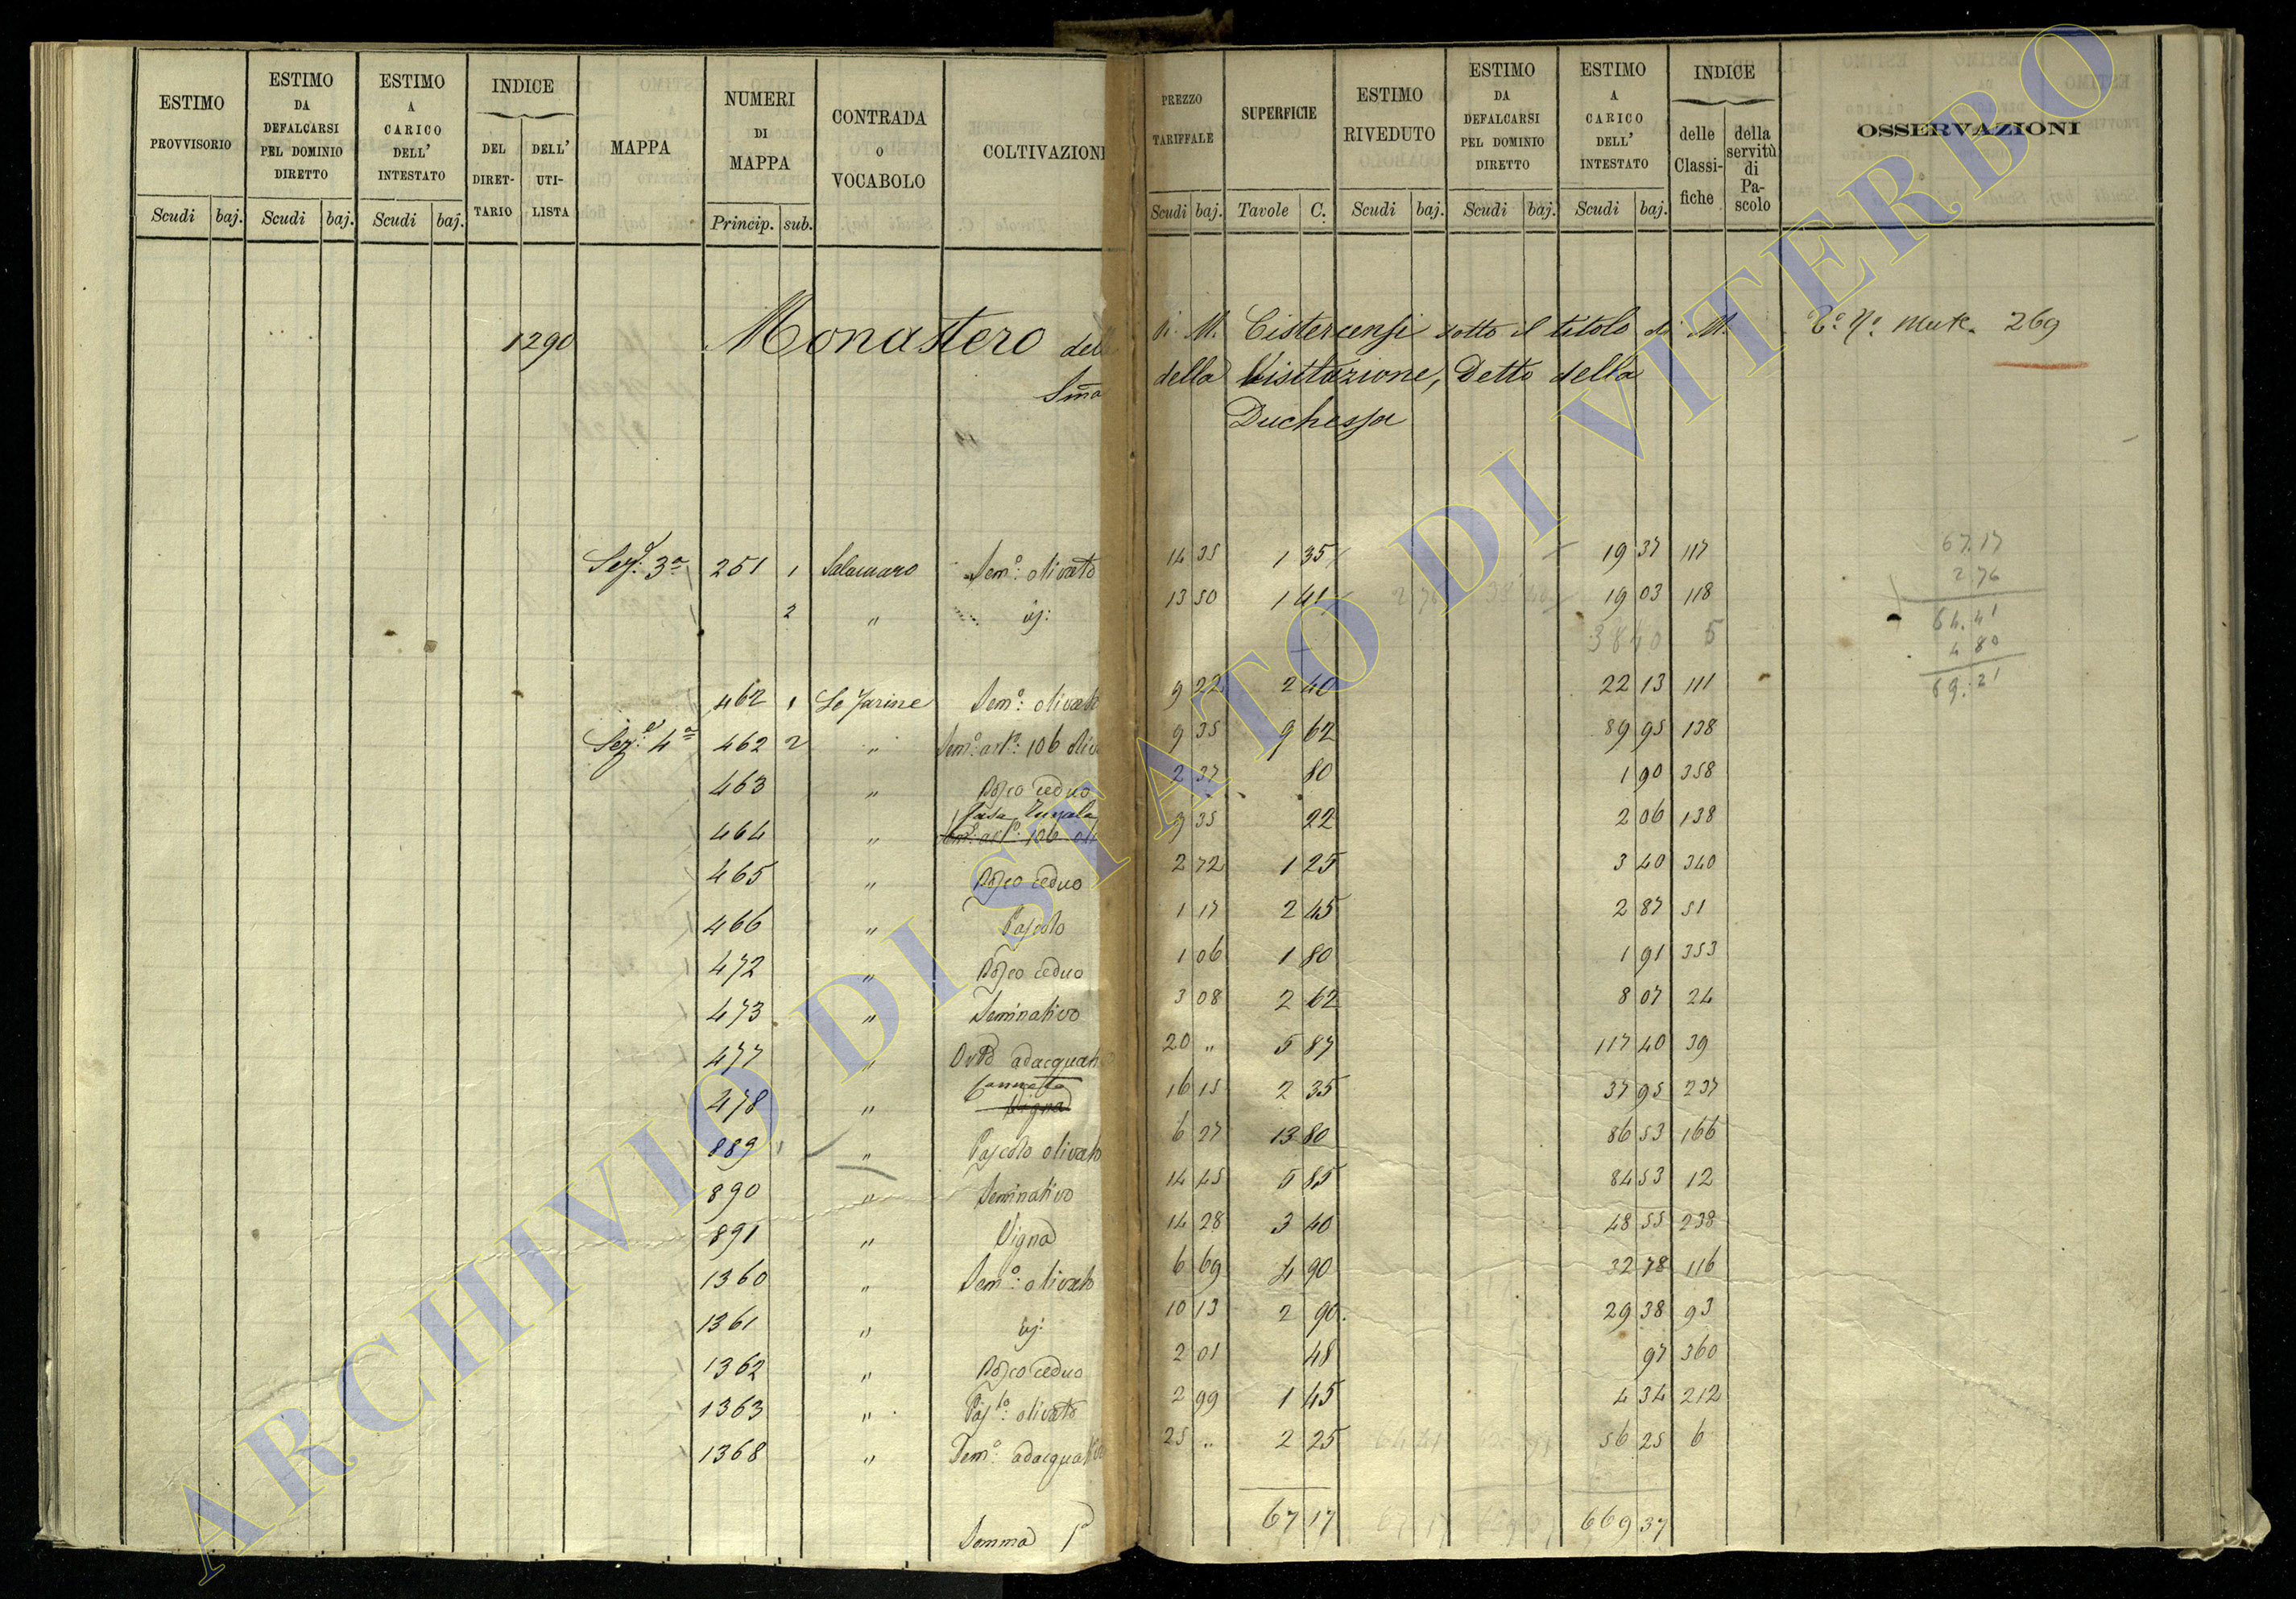 ESTIMO PROVVISORIO Scudi baj.
ESTIMO DA DEFALCARSI PEL DOMINIO DIRETTO Scudi baj.
ESTIMO A CARICO DELL' INTESTATO Scudi baj.
INDICE DEL DIRET-TARIO DELL' UTI-LISTA
MAPPA
NUMERI DI MAPPA Princip. sub.
CONTRADA O VOCABOLO
COLTIVAZIONI
PREZZO TARIFFALE Scudi baj.
SUPERFICIE Tavole C.
ESTIMO RIVEDUTO Scudi baj.
ESTIMO DA DEFALCARSI PEL DOMINIO DIRETTO Scudi baj.
ESTIMO A CARICO DELL' INTESTATO Scudi baj.
INDICE delle Classi-fiche della servitù di Pa-scolo
OSSERVAZIONI
1290 Monastero delle M. Cistercensi sotto il titolo di M. 269
Sma della Visitazione, Detto della
Duchessa
Sez: 3a 251 1 Sem.o: olivato 14 35 1 35 19 37 117
2 " id: 13 50 1 41 19 03 118
38 40 5
462 1 Le Farine Sem.o: olivato 9 22 2 40 22 13 111
Sez: 4a 462 2 " 9 35 9 62 89 95 138
463 " Bosco ceduo 2 37 80 1 90 358
464 " Casa 9 35 22 2 06 138
465 " Bosco ceduo 2 72 1 25 3 40 340
466 " Pascolo 1 17 2 45 2 87 51
472 " Bosco ceduo 1 06 1 80 1 91 353
473 " Seminativo 3 08 2 62 8 07 24
477 " Orto adacquativo 20 " 5 87 117 40 39
478 " Canneto Vigna 16 15 2 35 37 95 237
889 1 " Pascolo olivato 6 27 13 80 86 53 166
890 " Seminativo 14 45 5 85 84 53 12
891 " Vigna 14 28 3 40 48 55 238
1360 " Sem.o: olivato 6 69 4 90 32 78 116
1361 " id: 10 13 2 90 29 38 93
1362 " Bosco ceduo 2 01 48 97 360
1363 " Pas.lo: olivato 2 99 1 45 4 34 212
1368 " Sem.o: adacquativo 25 " 2 25 56 25 6
Somma 67 17 669 37
67.17
2 76
64.41
4 80
69.21
ARCHIVIO DI STATO DI VITERBO